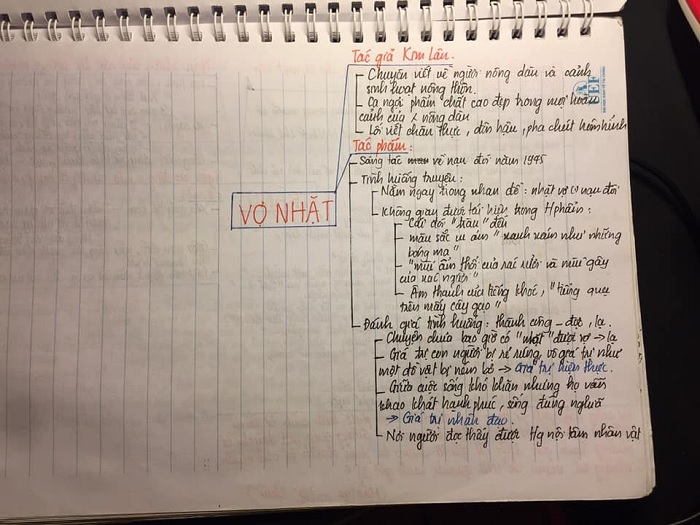 Tác giả Kim Lân.
Chuyên viết về người nông dân và cảnh
sinh hoạt nông thôn.
Ca ngợi phẩm chất cao đẹp trong mọi hoàn
cảnh của x nông dân
Lối viết chân thực, đôn hậu, pha chút hóm hỉnh
UEF
Tác phẩm:
Sáng tác về nạn đói năm 1945
Tình huống truyện:
VỢ NHẶT
Nằm ngay trong nhan đề: nhặt vợ (-) nạn đói
Không gian được tái hiện trong tphẩm:
Cái đói "tràn" đến
màu sắc u ám "xanh xám như những
bóng ma"
"mùi ẩm thối của rác rưởi và mùi gây
của xác người"
Âm thanh của tiếng khóc, "tiếng quạ
trên mấy cây gạo"
Đánh giá tình huống: thành công - độc, lạ.
Chuyện chưa bao giờ có "nhặt" được vợ → lạ
Giá trị con người bị rẻ rúng, vô giá trị như
một đồ vật bị ném bỏ → Giá trị hiện thực.
Giữa cuộc sống khó khăn nhưng họ vẫn
khao khát hạnh phúc, sống đúng nghĩa
→ Giá trị nhân đạo.
Nơi người đọc thấy được nội tâm nhân vật